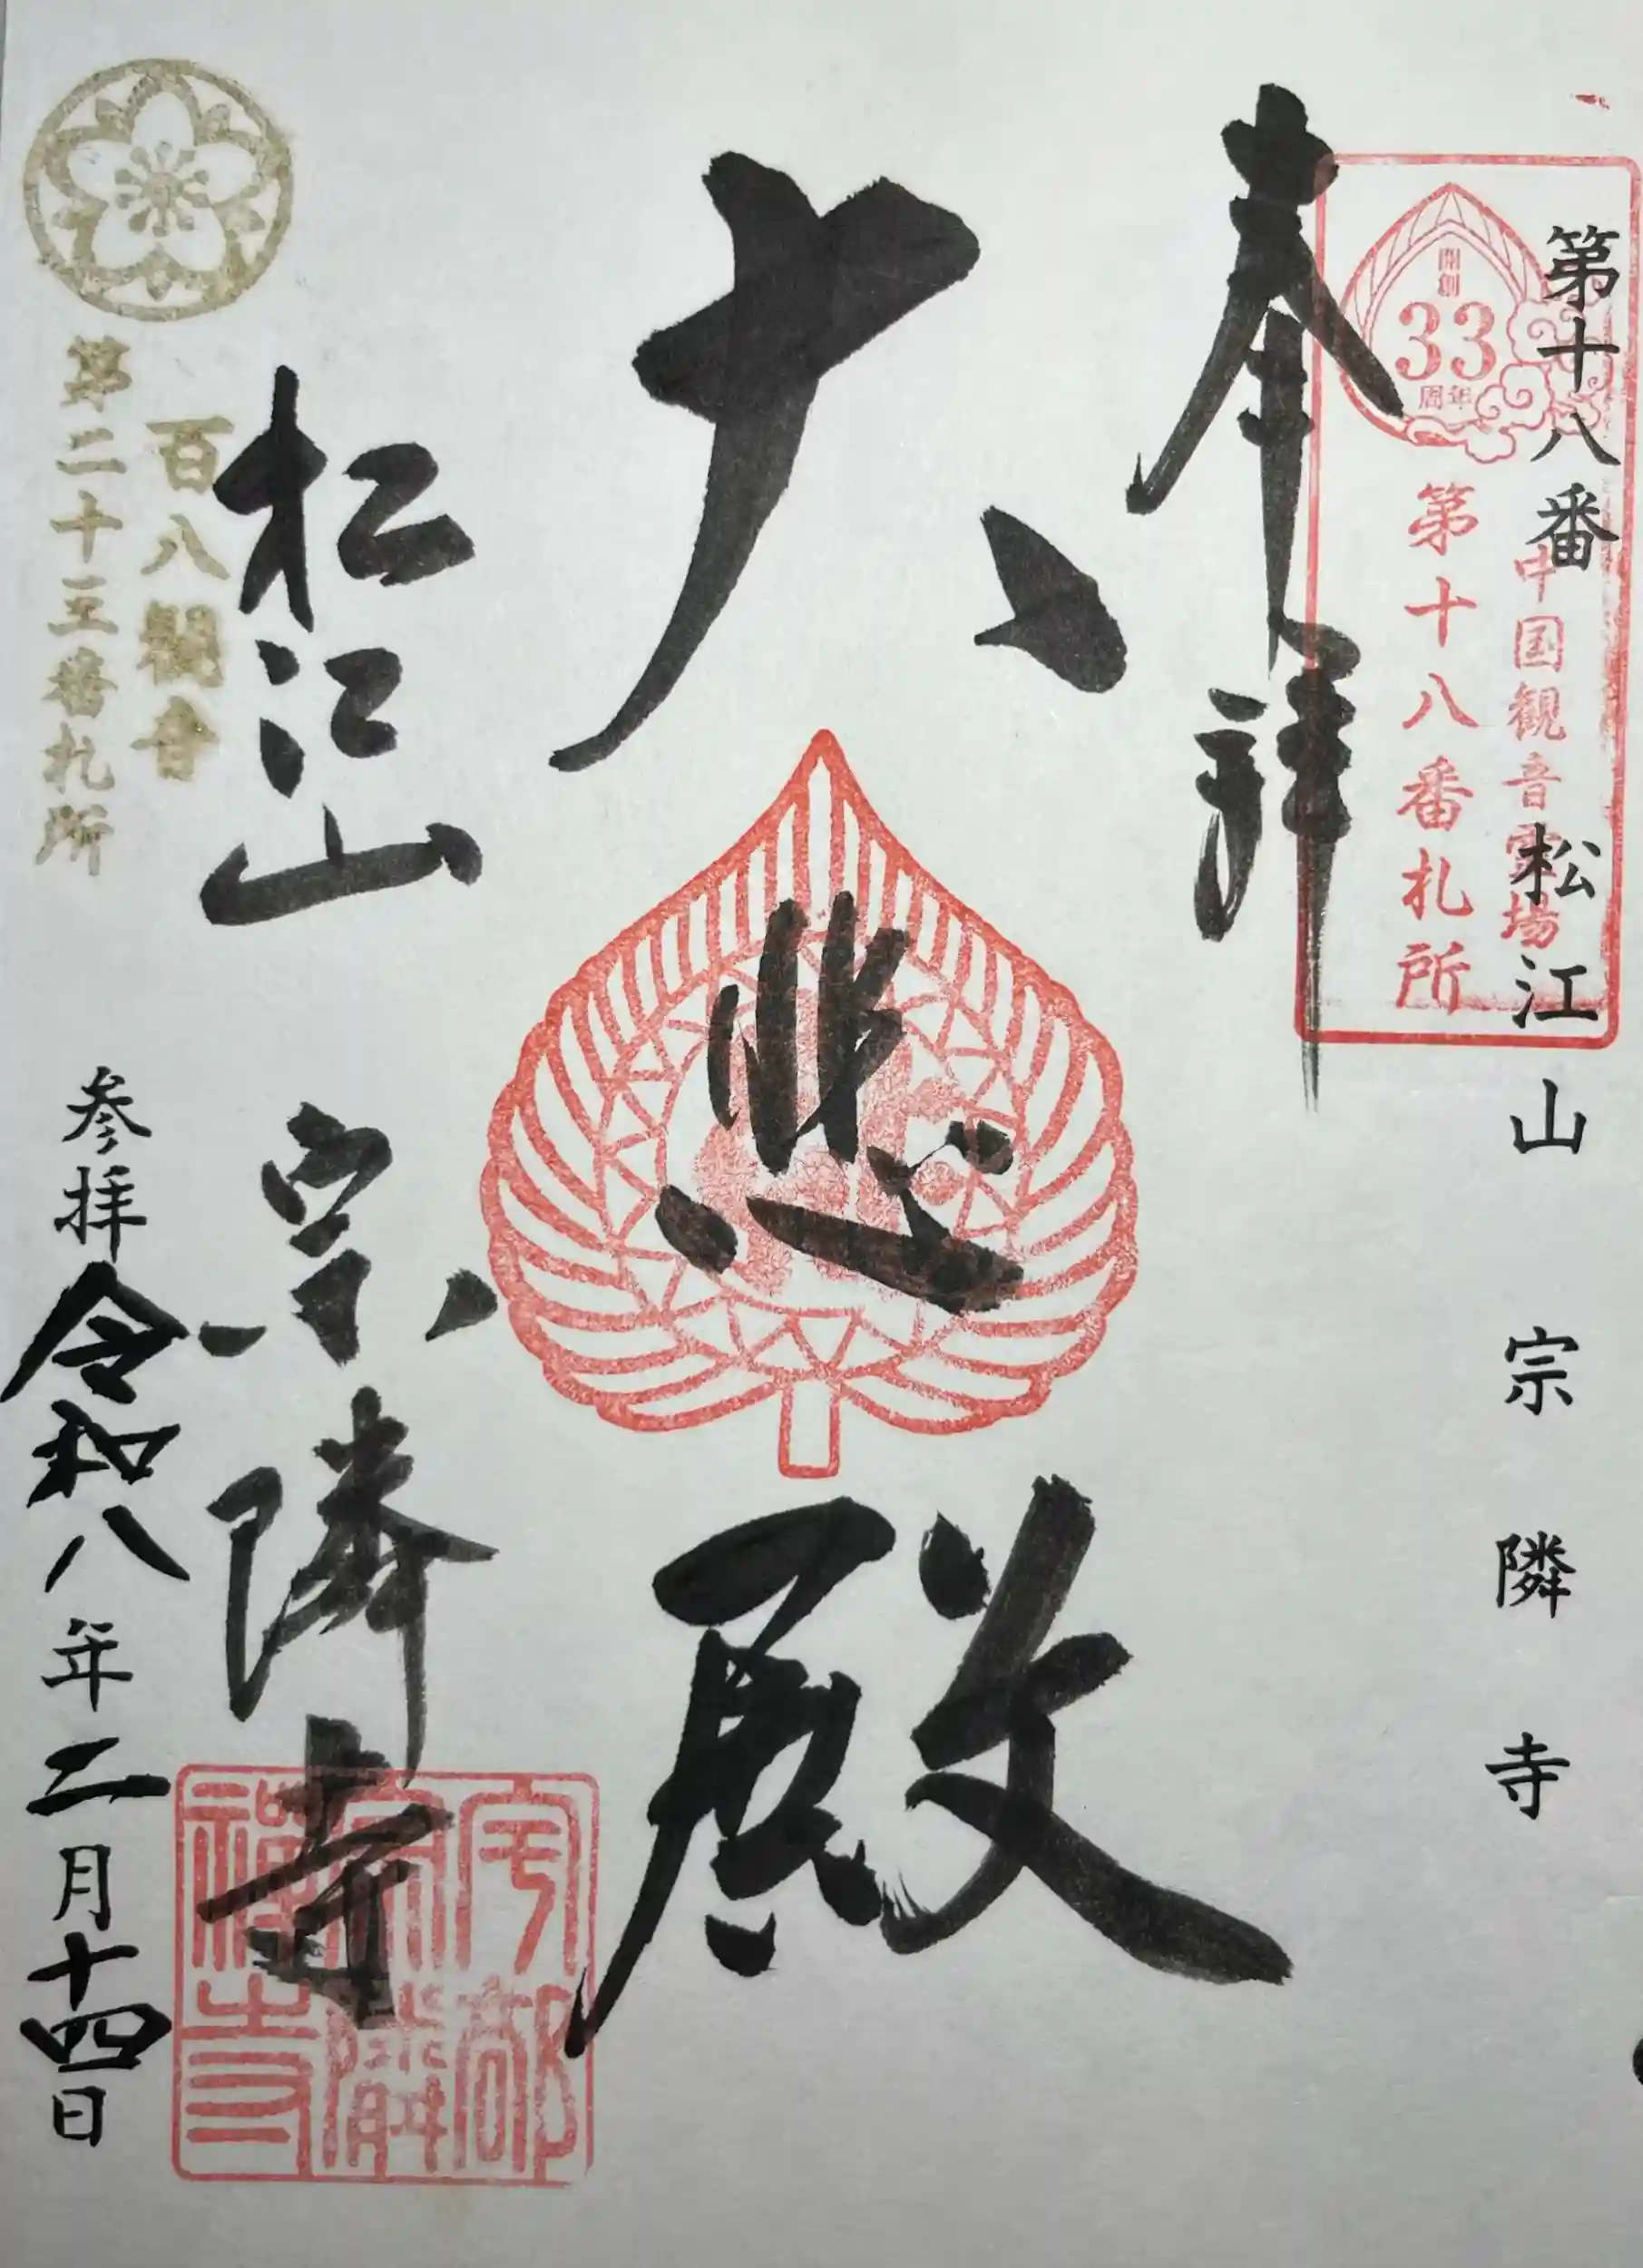 第十八番 松江山 宗隣寺
中国観音霊場
第十八番札所
開創
33
周年
奉拝
大悲殿
松江山 宗隣寺
宇部
宗隣
禅寺
百八観音
第二十三番札所
参拝 令和八年二月十四日